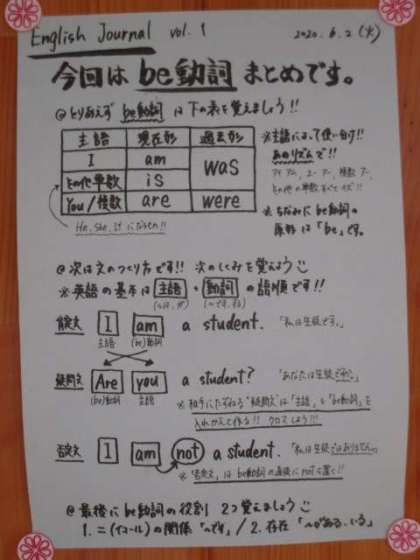 English Journal vol. 1 2020.6.2(火)
今回は be動詞 まとめです。
@とりあえず be動詞 は下の表を覚えましょう!!
主語 現在形 過去形
I am was
その他単数 is
You/複数 are were
He, she, it など!!
※主語によって使い分け!!
あのリズムで!!
その他の単数
※ちなみに be動詞の
原形は「be」です。
@次は文のつくり方です!! 次のしくみを覚えよう
※英語の基本は 主語 + 動詞 の語順です!!
肯定文 I am a student. 「私は生徒です。」
主語 (be)動詞
疑問文 Are you a student? 「あなたは生徒ですか。」
(be)動詞 主語
※相手にたずねる"疑問文"は「主語」と「be動詞」を
入れかえて作る!! クロスしよう!!!
否定文 I am not a student. 「私は生徒ではありません。」
※"否定文"は be動詞の直後に not を置く!!
@最後に be動詞の役割 2つ覚えましょう
1. =(イコール)の関係「〜です」/ 2. 存在「〜がある、いる」